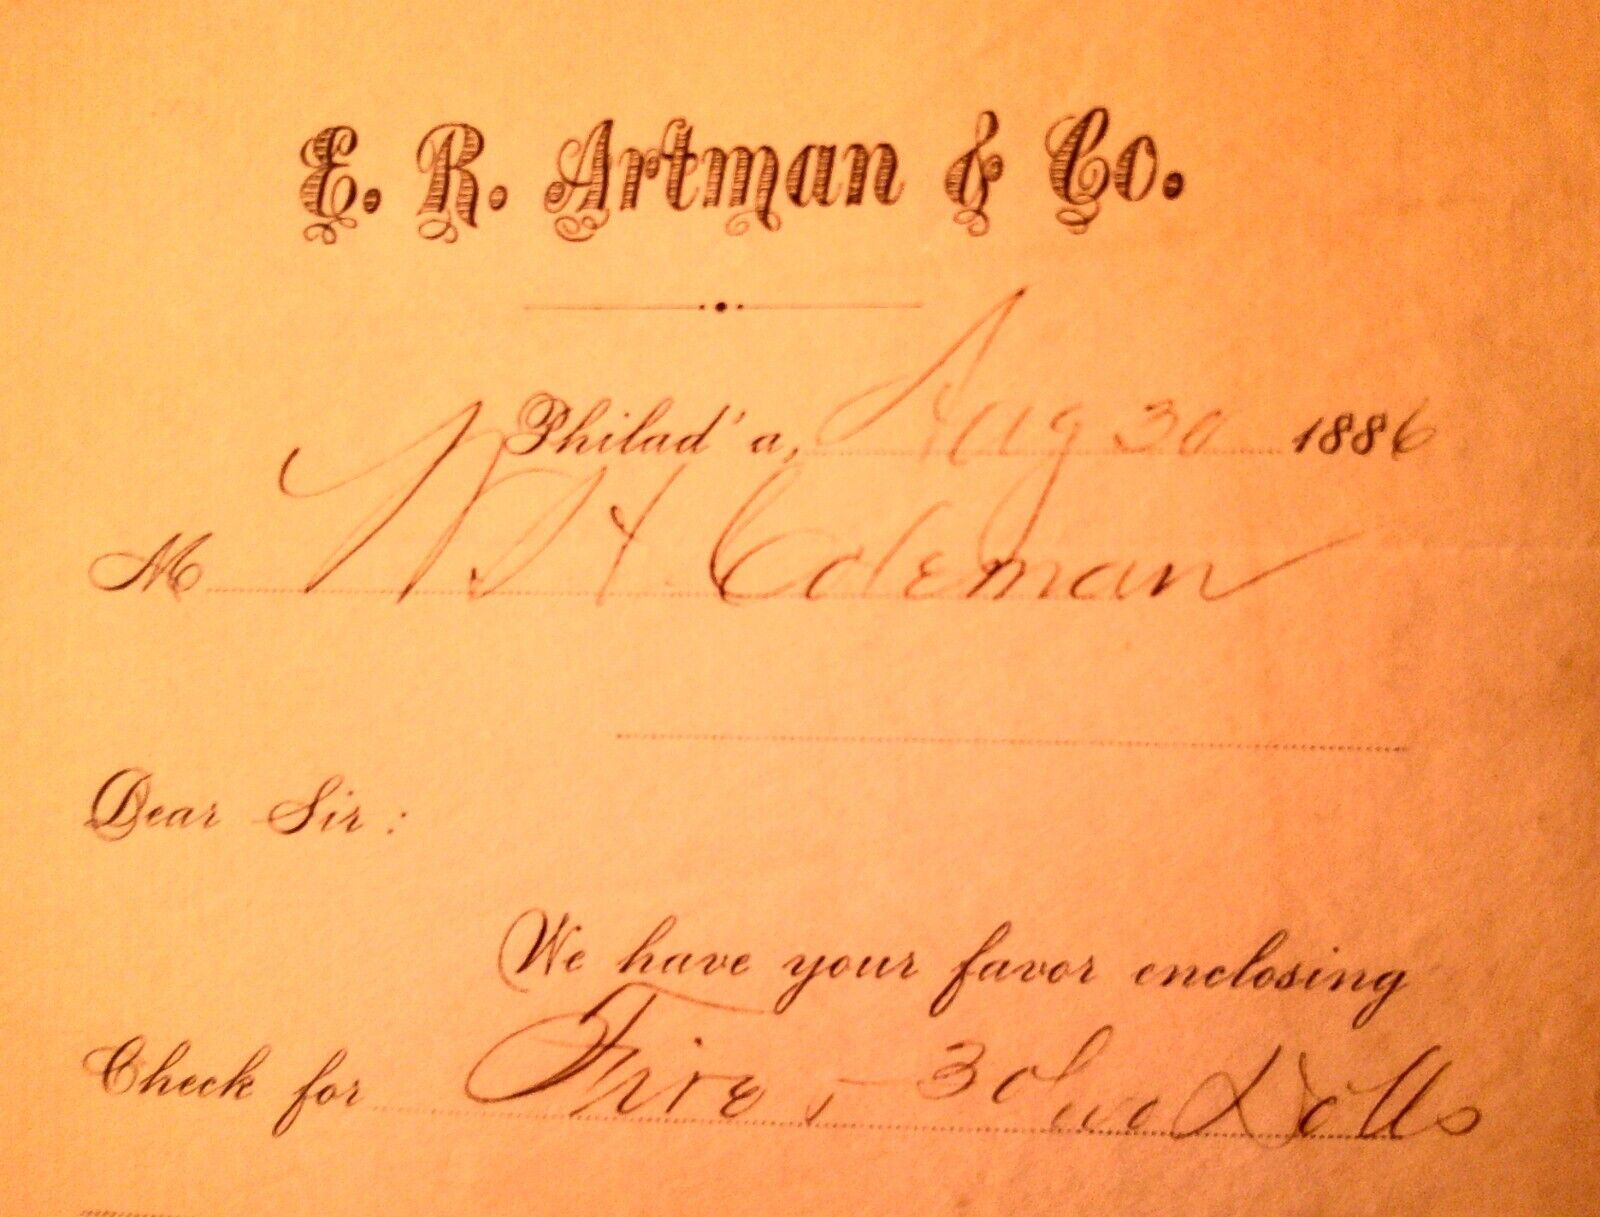 E. R. Artman & Co.
Philad'a, Aug 30 1886
M W H Coleman
Dear Sir:
We have your favor enclosing
Check for Five, - 30/100 Dolls